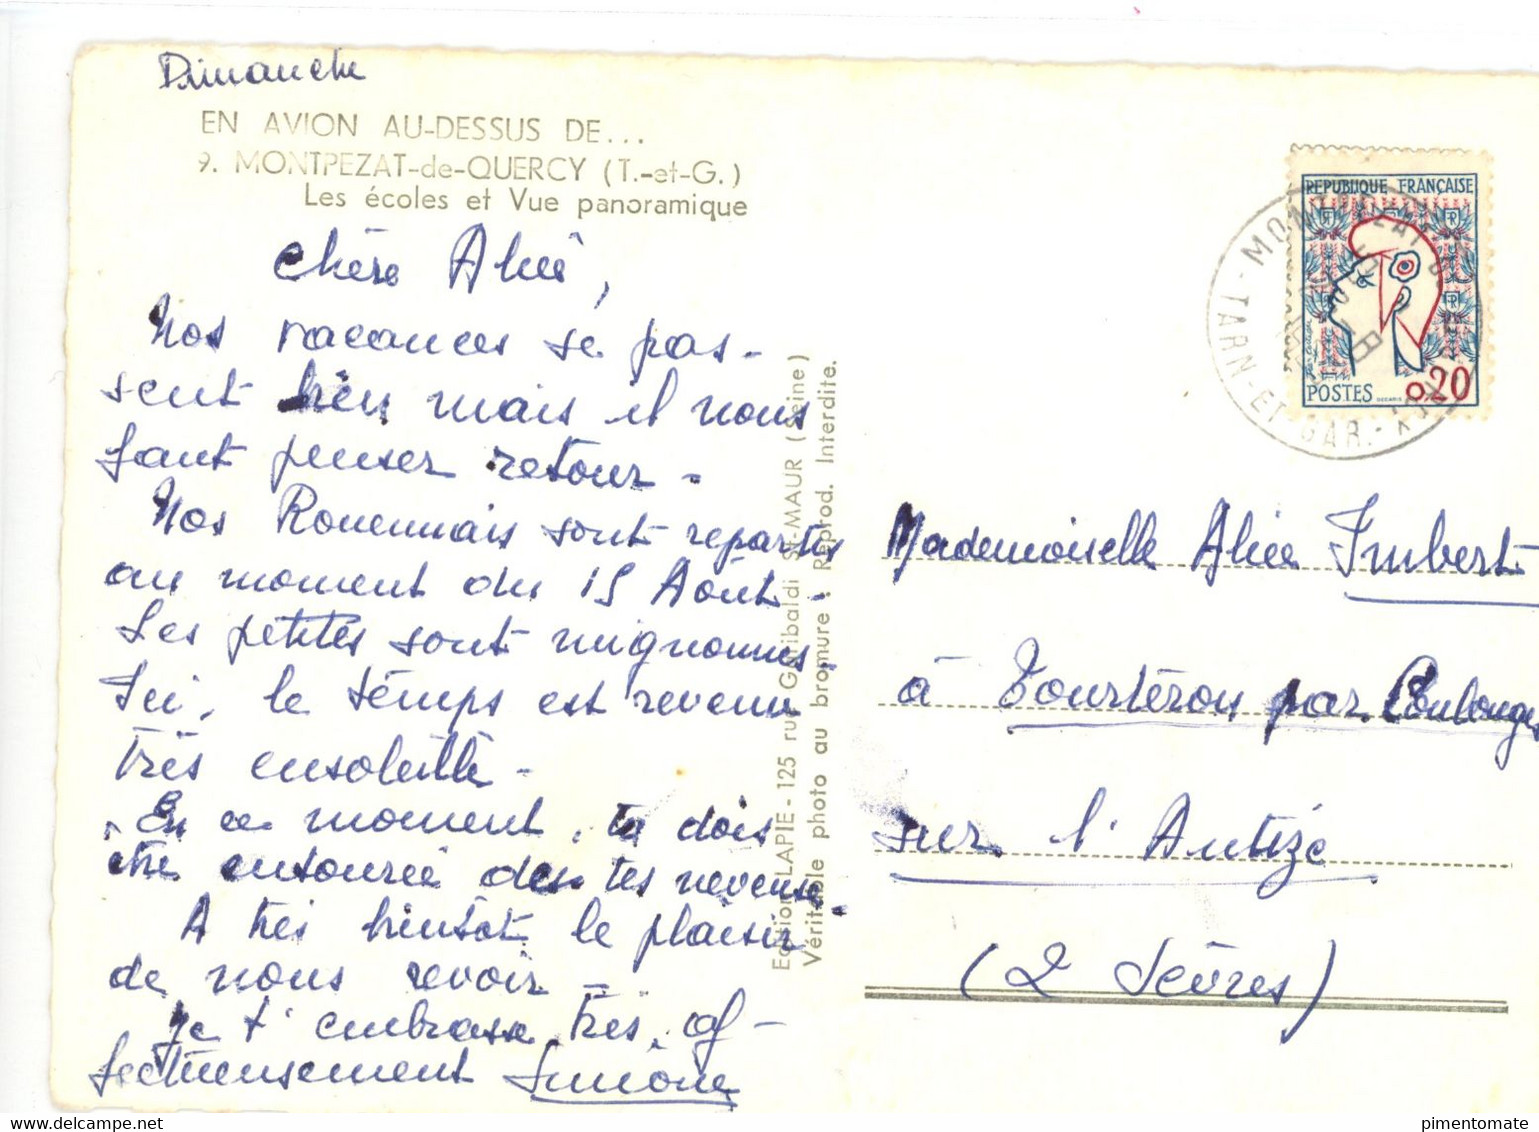 Dimanche
EN AVION AU-DESSUS DE...
9. MONTPEZAT-de-QUERCY (T.-et-G.)
Les écoles et Vue panoramique
Chère Alice,
Nos vacances se pas-
sent bien mais il nous
faut penser retour -
Nos Rouennais sont repartis
au moment du 15 Août -
Les petites sont mignonnes.
Ici, le temps est revenu
très ensoleillé -
En ce moment, tu dois
être entourée de tes neveux.
A très bientôt le plaisir
de nous revoir -
Je t'embrasse très af-
fectueusement Simone
Edition LAPIE - 125 rue Garibaldi St-MAUR (Seine)
Véritable photo au bromure : Reprod. Interdite.
REPUBLIQUE FRANÇAISE
POSTES 0,20
DECARIS
TARN-ET-GAR.
Mademoiselle Alice Imbert
à Tourteron par Coulonges
sur l'Autize
(2 Sèvres)
pimentomate